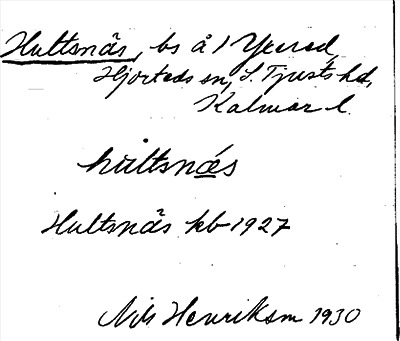 Hultsnäs, bs å 1 Yxered,
Hjorteds sn, S. Tjusts hd,
Kalmar l.
hùltsnǽs
Hultsnäs kb 1927
Nils Henriksm 1930